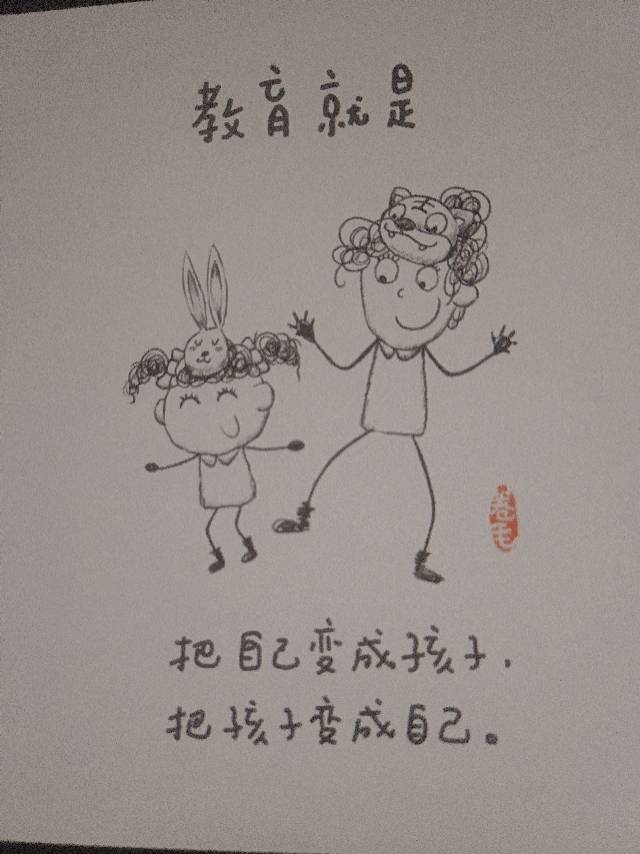 教育就是
卷毛
把自己变成孩子.
把孩子变成自己。